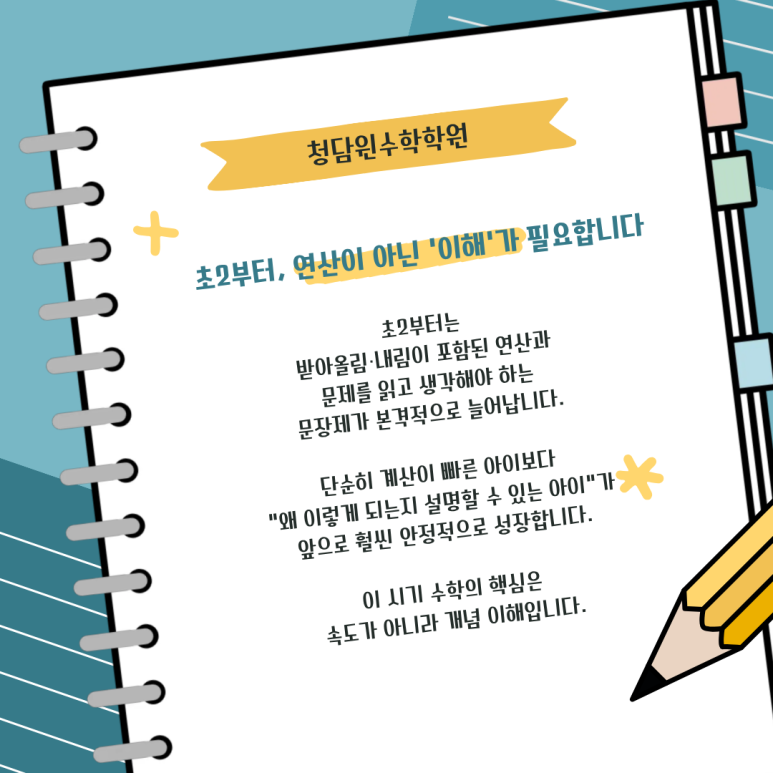 청담원수학학원
초2부터, 연산이 아닌 '이해'가 필요합니다
초2부터는
받아올림·내림이 포함된 연산과
문제를 읽고 생각해야 하는
문장제가 본격적으로 늘어납니다.
단순히 계산이 빠른 아이보다
"왜 이렇게 되는지 설명할 수 있는 아이"가
앞으로 훨씬 안정적으로 성장합니다.
이 시기 수학의 핵심은
속도가 아니라 개념 이해입니다.